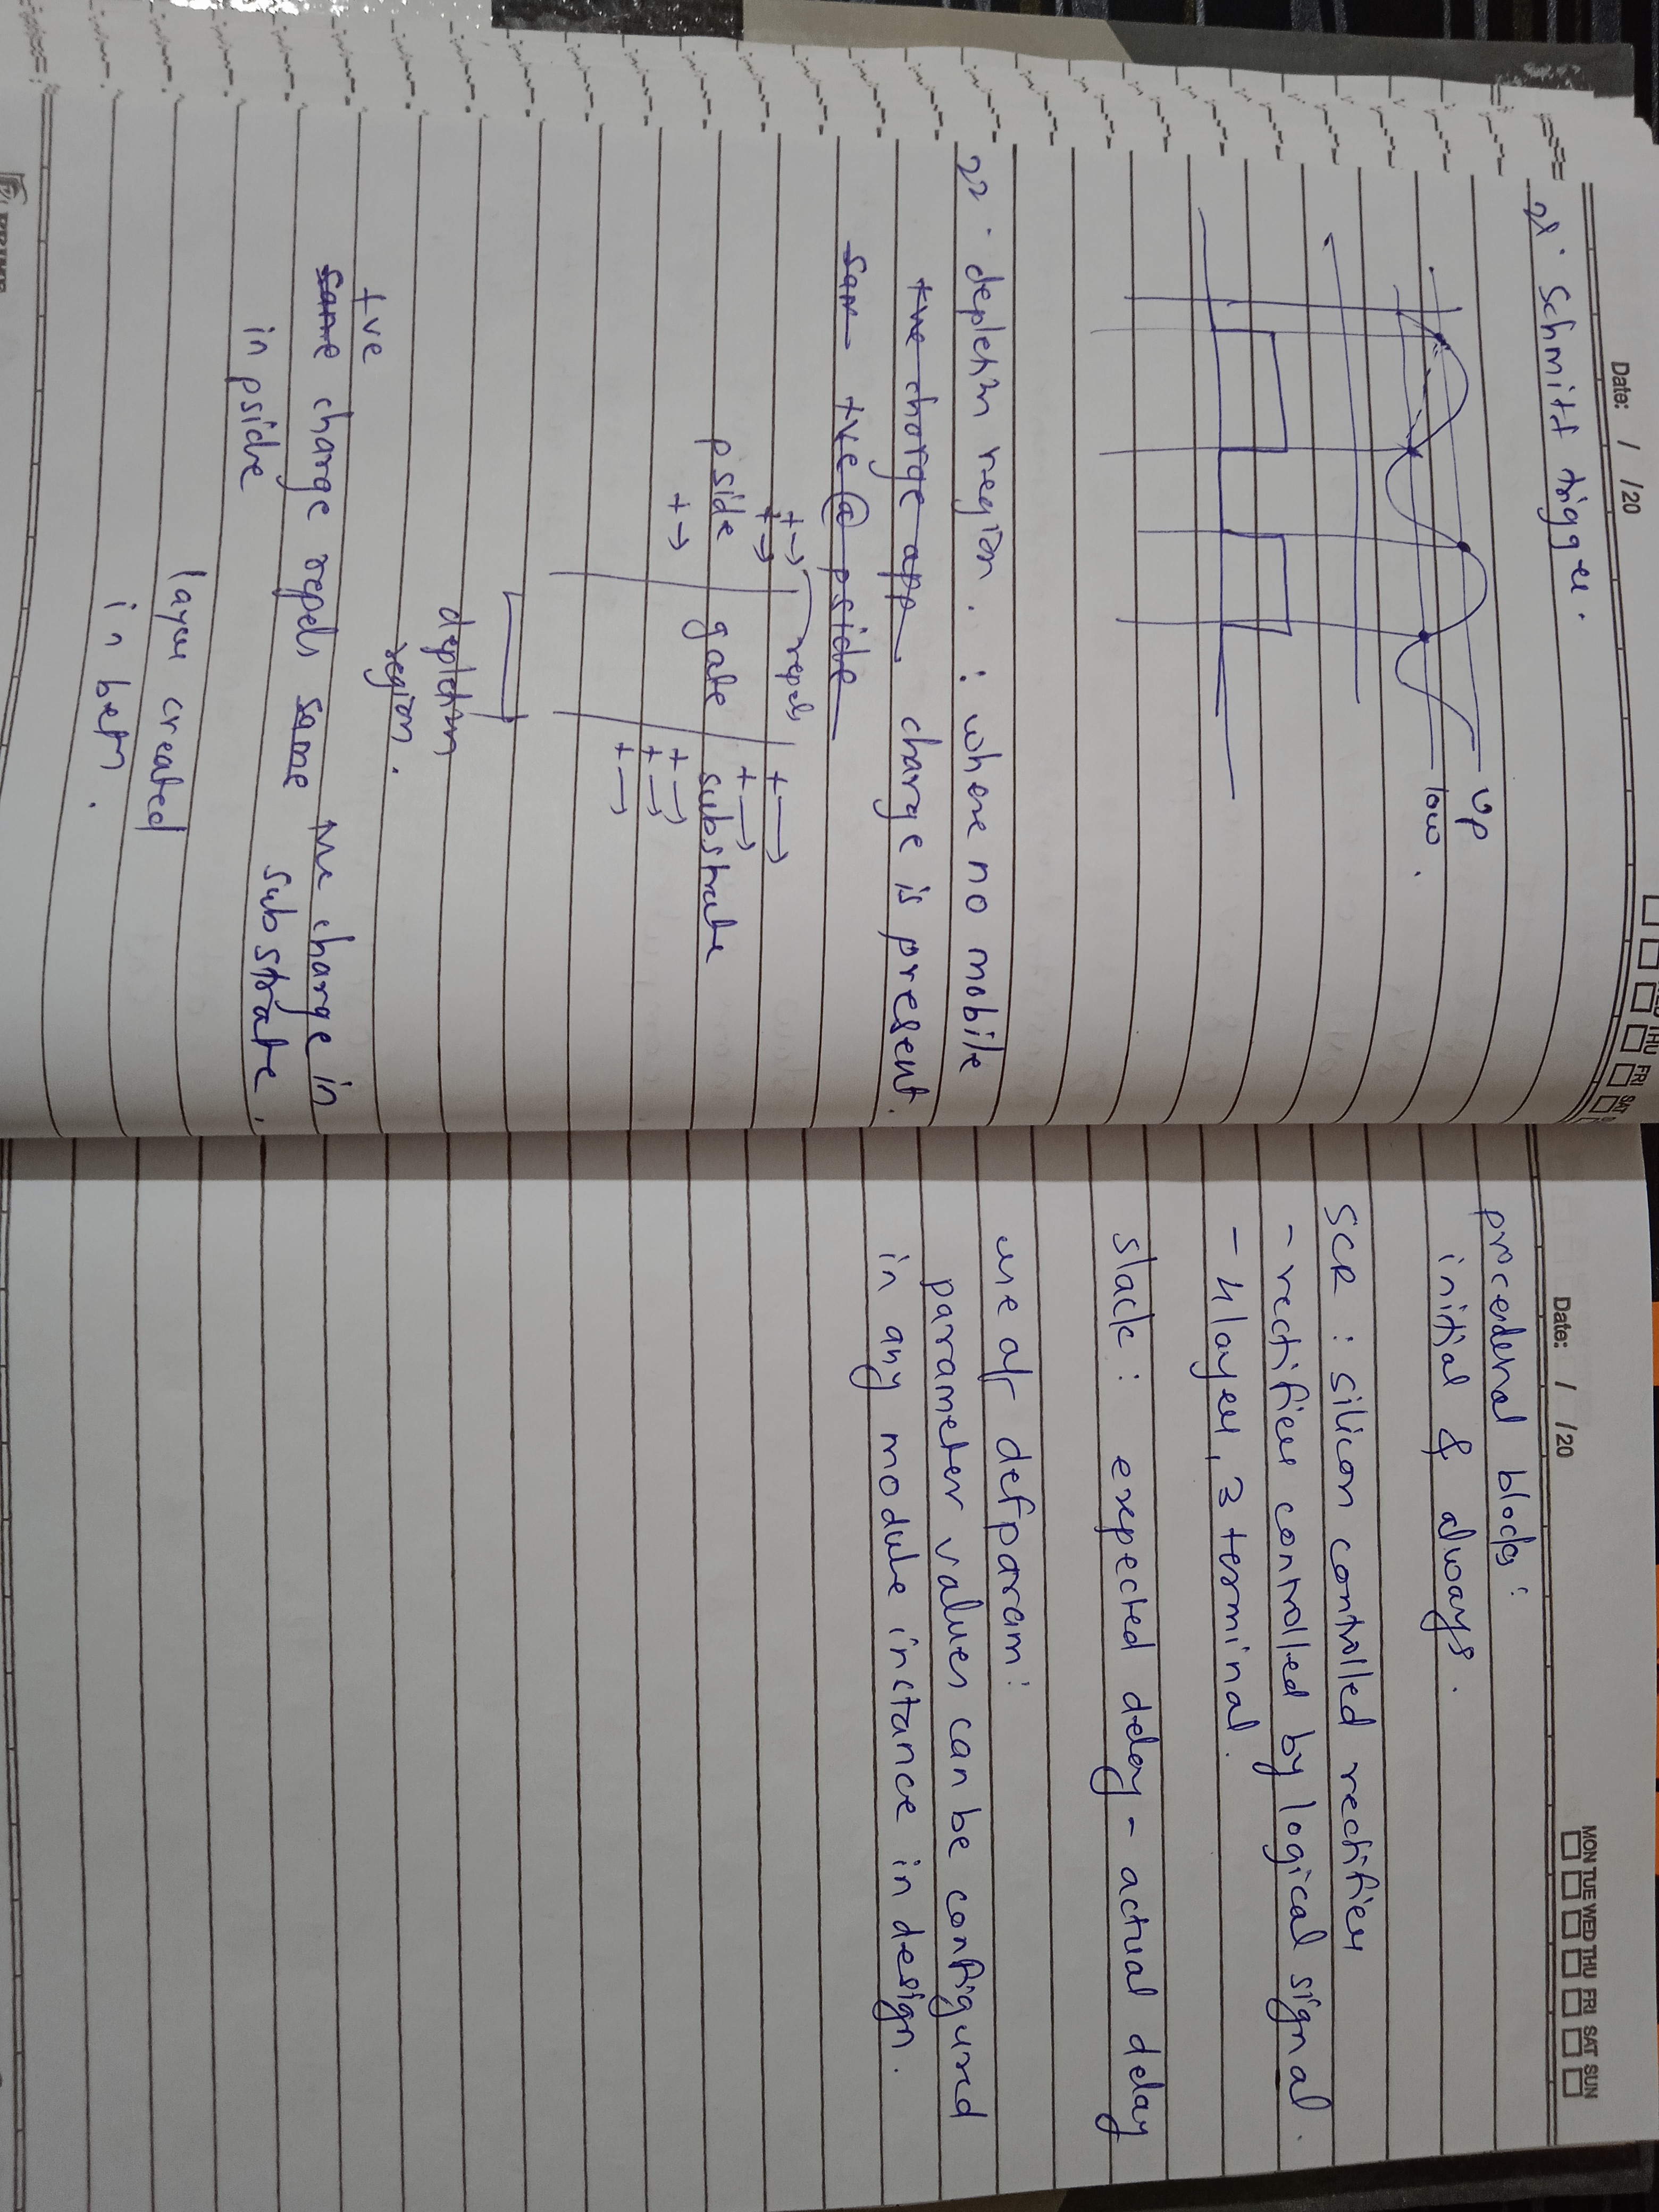 Date: / /20
THU FRI SAT
21. Schmitt trigger.
up
low.
22. depletn region. : where no mobile
+ve charge app. charge is present.
sam +ve @ pside
+→ repels +→
+→ +→
pside gate substrate
+→ +→
+→
+→
depletn
region.
+ve
same charge repels same +ve charge in
in pside substrate.
layer created
in betn.
Date: / /20
MON TUE WED THU FRI SAT SUN
procedural blocks:
initial & always.
SCR : silicon controlled rectifier
- rectifier controlled by logical signal.
- 4 layer, 3 terminal.
slack: expected delay - actual delay
use of defparam:
parameter values can be configured
in any module instance in design.